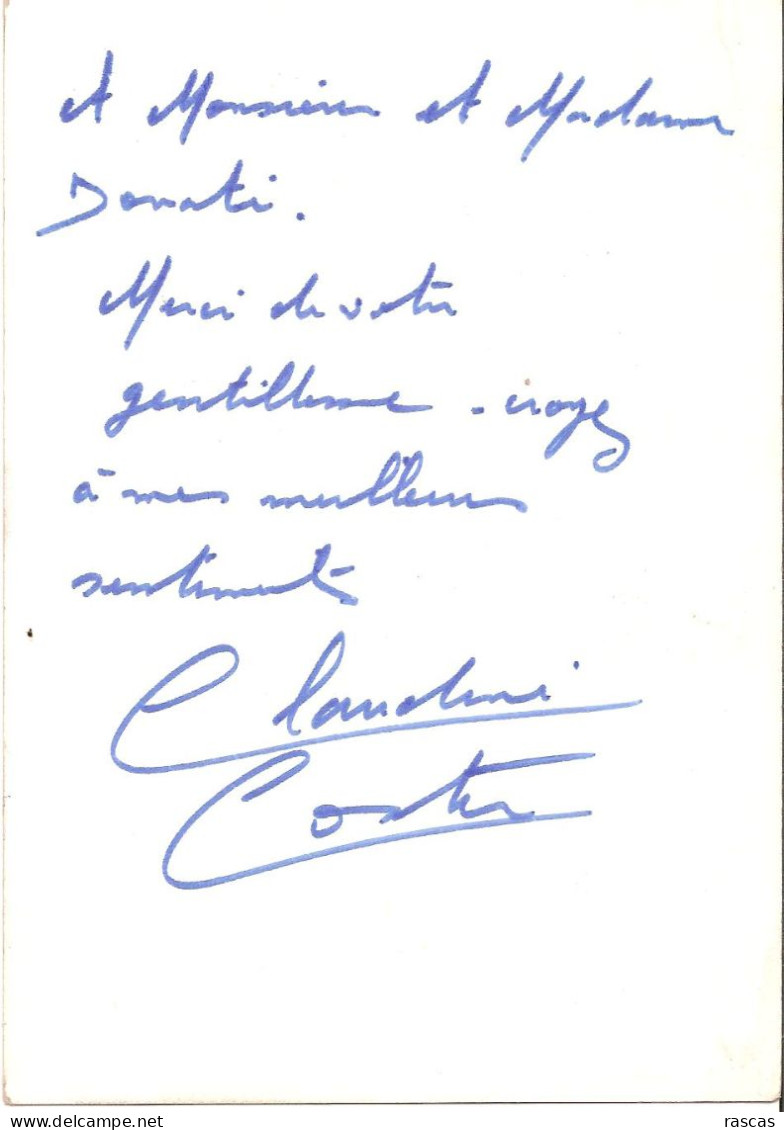 A Monsieur et Madame
Donati.
Merci de votre
gentillesse - croyez
à mes meilleurs
sentiments
Claudine
Coster
delcampe.net
rascas